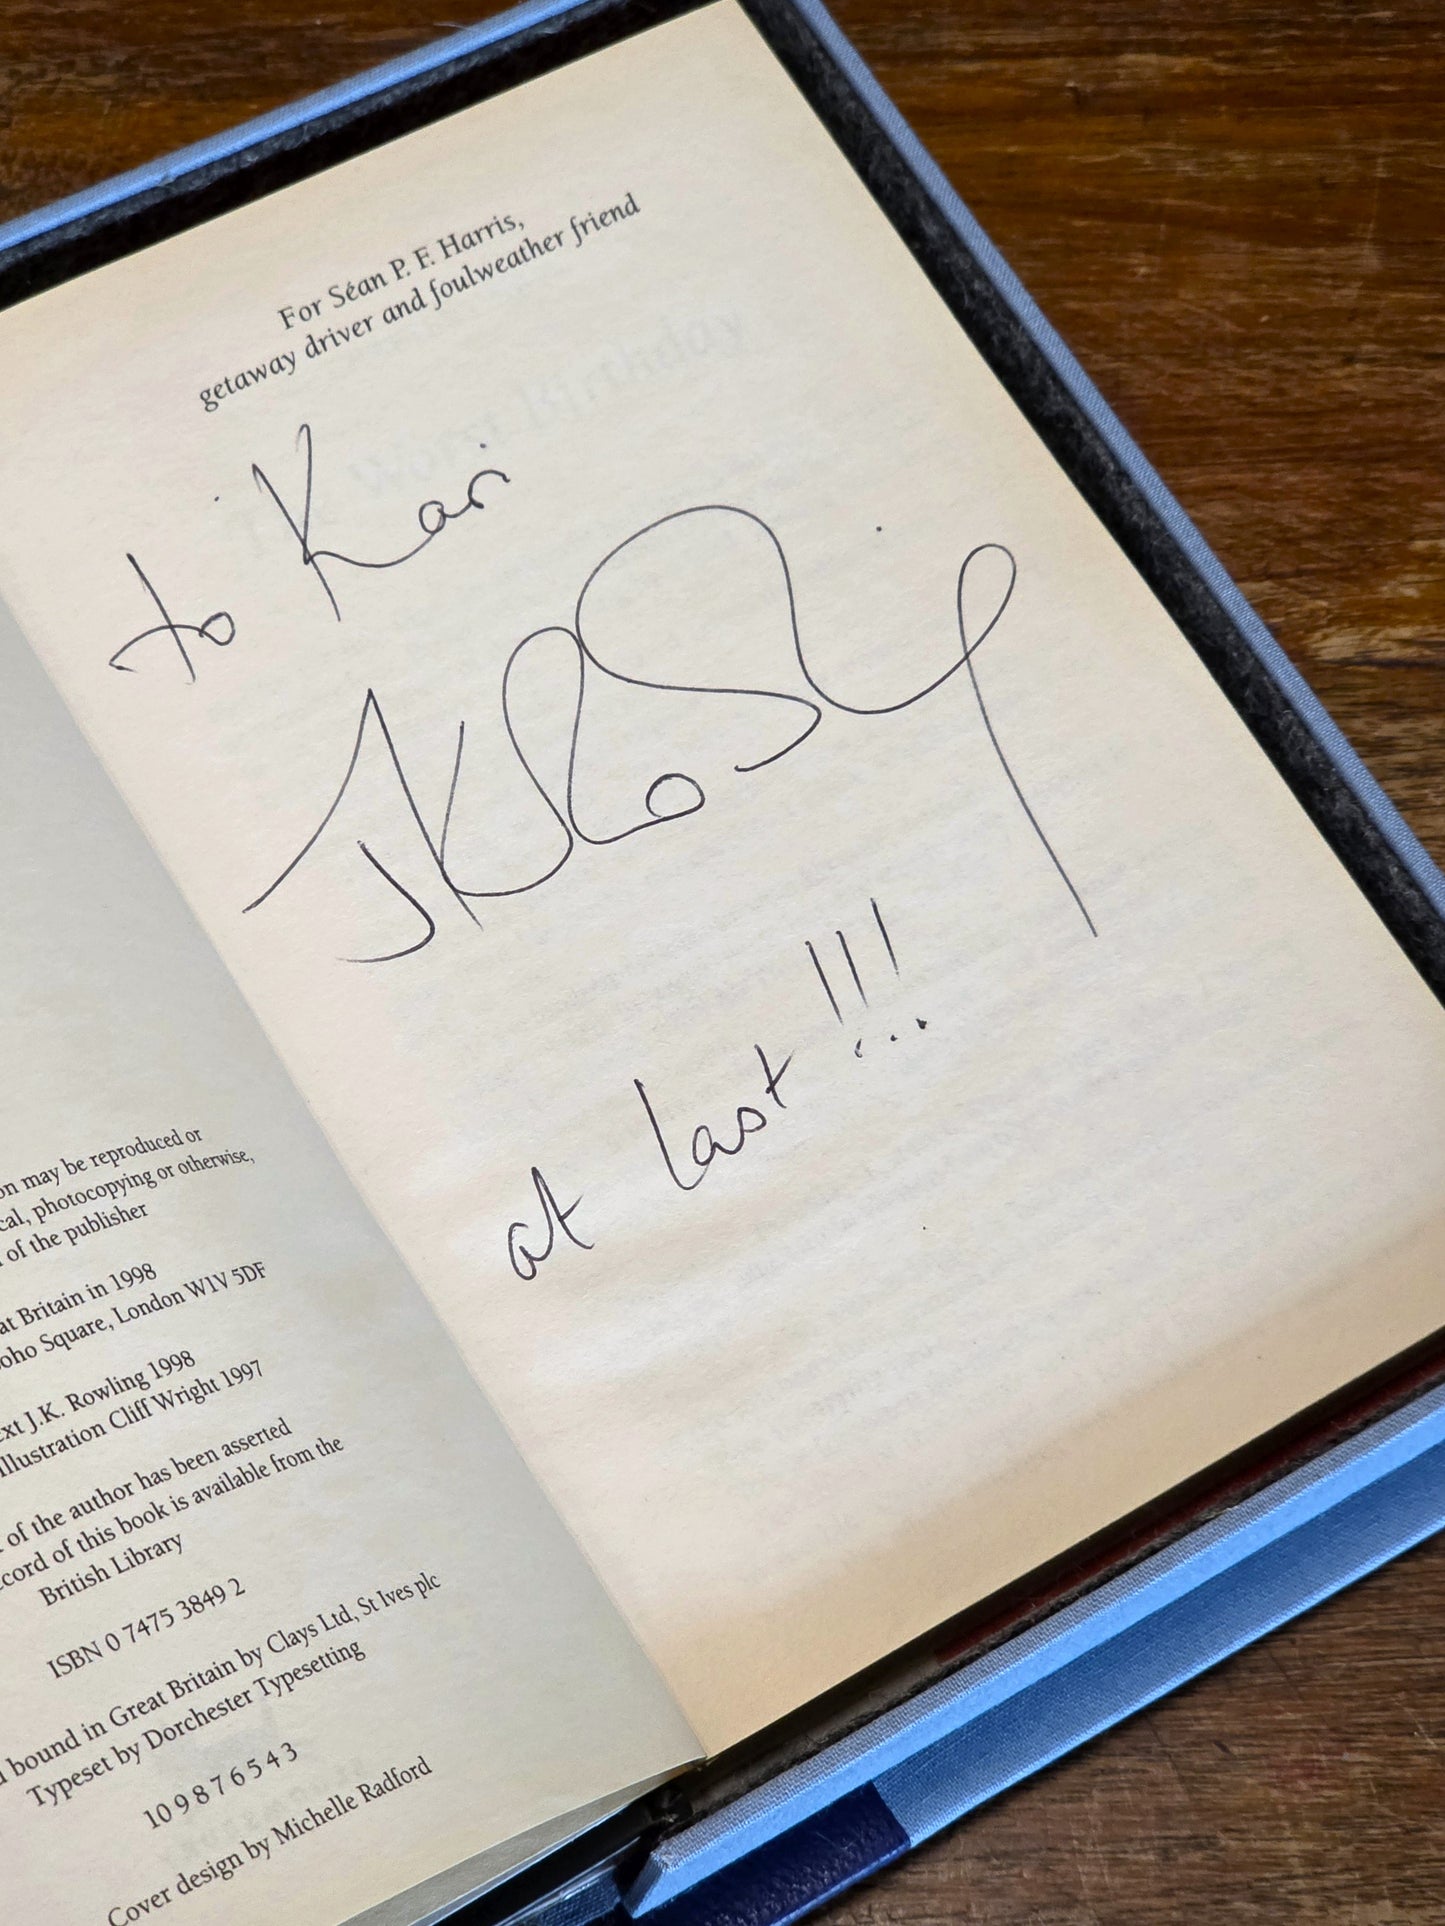 on may be reproduced or
cal, photocopying or otherwise,
of the publisher
at Britain in 1998
oho Square, London W1V 5DF
ext J.K. Rowling 1998
illustration Cliff Wright 1997
of the author has been asserted
cord of this book is available from the
British Library
ISBN 0 7475 3849 2
d bound in Great Britain by Clays Ltd, St Ives plc
Typeset by Dorchester Typesetting
10 9 8 7 6 5 4 3
Cover design by Michelle Radford
For Séan P. F. Harris,
getaway driver and foulweather friend
to Kari
JKRowling
at last!!!